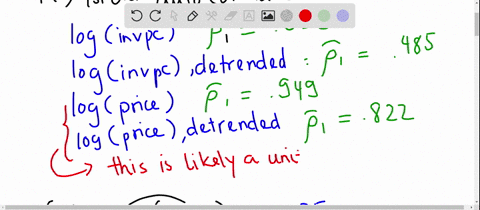 log(invpc) ρ̂₁ =
log(invpc), detrended : ρ̂₁ = .485
log(price) ρ̂₁ = .949
log(price), detrended ρ̂₁ = .822
this is likely a uni